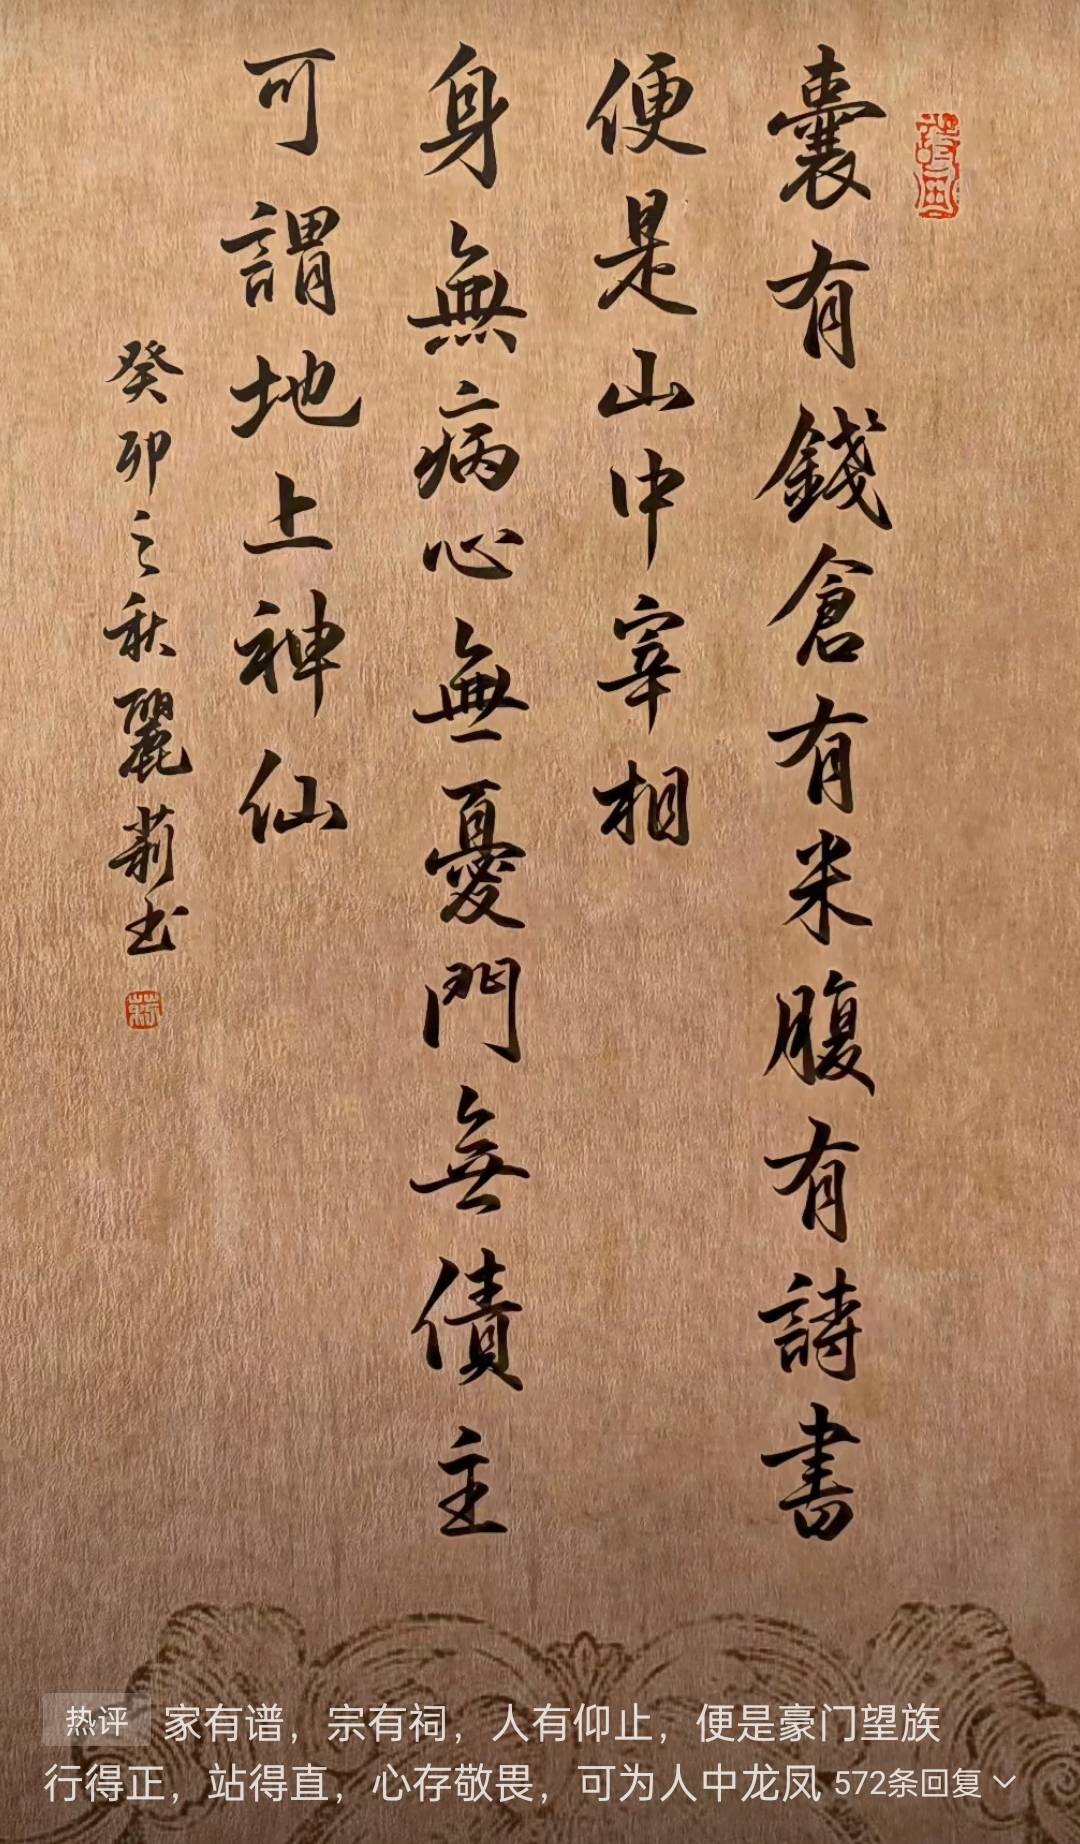 囊有錢倉有米腹有詩書
便是山中宰相
身無病心無憂門無債主
可謂地上神仙
癸卯之秋麗莉书
热评 家有谱，宗有祠，人有仰止，便是豪门望族
行得正，站得直，心存敬畏，可为人中龙凤 572条回复